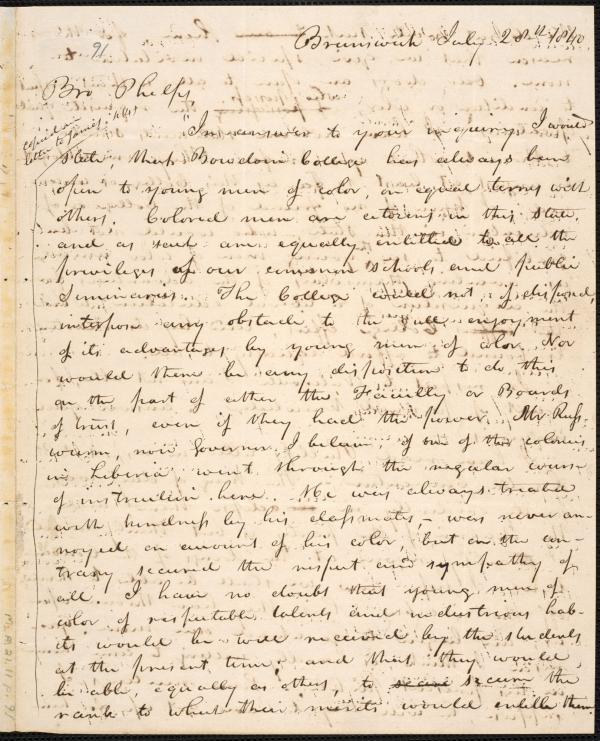 Brunswick July 28th 1840
91
Bro Phelps
copied in
letter to James
"In answer to your inquiry, I would
state that Bowdoin College has always been
open to young men of color, on equal terms with
others. Colored men are citizens in this state,
and as such are equally entitled to all the
privileges of our common schools and public
Seminaries. The College could not, if disposed,
interpose any obstacle to the full enjoyment
of its advantages by young men of color. Nor
would there be any disposition to do this
on the part of either the Faculty or Boards
of trust, even if they had the power. Mr. Russ-
wurm, now Governor I believe of one of the colonies
in Liberia, went through the regular course
of instruction here. He was always treated
with kindness by his classmates, – was never an-
noyed on amount of his color, but on the con-
trary secured the respect and sympathy of
all. I have no doubt that young men of
color of respectable talents and industrious hab-
its would be well received by the students
at the present time, and that they would
be able, equally as others, to secure the
rank to which their merits would entitle them